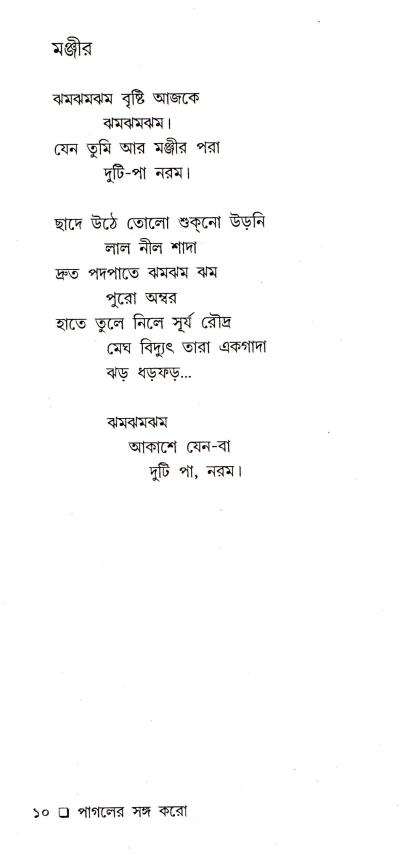 মঞ্জীর
ঝমঝমঝম বৃষ্টি আজকে
ঝমঝমঝম।
যেন তুমি আর মঞ্জীর পরা
দুটি-পা নরম।
ছাদে উঠে তোলো শুক্‌নো উড়নি
লাল নীল শাদা
দ্রুত পদপাতে ঝমঝম ঝম
পুরো অম্বর
হাতে তুলে নিলে সূর্য রৌদ্র
মেঘ বিদ্যুৎ তারা একগাদা
ঝড় ধড়ফড়...
ঝমঝমঝম
আকাশে যেন-বা
দুটি পা, নরম।
১০ ❑ পাগলের সঙ্গ করো